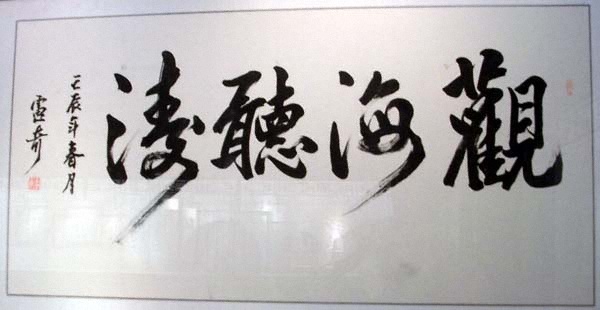 觀海聽濤
壬辰年春月